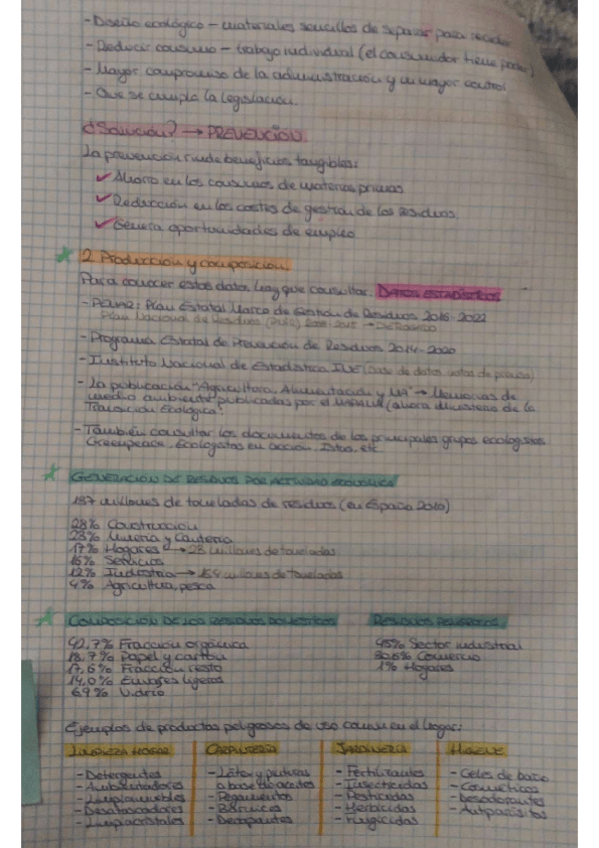 - Diseño ecológico - materiales sencillos de separar para reciclar
- Reducir consumo - trabajo individual (el consumidor tiene poder)
- Mayor compromiso de la administración y un mayor control
- Que se cumpla la legislación.
¿Solución? → PREVENCIÓN.
La prevención rinde beneficios tangibles:
✓ Ahorro en los consumos de materias primas
✓ Reducción en los costes de gestión de los residuos.
✓ Genera oportunidades de empleo
2. Producción y composición.
Para conocer estos datos hay que consultar: DATOS ESTADÍSTICOS
- PEMAR: Plan Estatal Marco de Gestión de Residuos 2016-2022
Plan Nacional de Residuos (PNIR) 2008-2015 →
- Programa Estatal de Prevención de Residuos 2014-2020
- Instituto Nacional de Estadística INE (base de datos notas de prensa)
- La publicación "Agricultura, Alimentación y MA" → Memorias de
medio ambiente publicadas por el (ahora Ministerio de la
Transición Ecológica).
- También consultar los documentos de los principales grupos ecologistas
Greenpeace, Ecologistas en acción, etc.
GENERACIÓN DE RESIDUOS POR ACTIVIDAD ECONÓMICA
137 millones de toneladas de residuos (en España 2010)
28% Construcción
23% Minería y cantería
17% Hogares → 23 millones de toneladas
16% Servicios
12% Industria → 16'4 millones de toneladas
4% Agricultura, pesca
COMPOSICIÓN DE LOS RESIDUOS DOMÉSTICOS RESIDUOS PELIGROSOS
42,7% Fracción orgánica 45% Sector industrial
18,7% Papel y cartón 30,6% Comercio
17,6% Fracción resto 1% Hogares
14,0% Envases ligeros
6,9% Vidrio
Ejemplos de productos peligrosos de uso común en el hogar:
LIMPIEZA HOGAR CARPINTERÍA JARDINERÍA HIGIENE
- Detergentes - Látex y pinturas - Fertilizantes - Geles de baño
- Ambientadores a base de aceites - Insecticidas - Cosméticos
- Limpiamuebles - Pegamentos - Pesticidas - Desodorantes
- Desatascadores - Barnices - Herbicidas - Antiparásitos
- Limpiacristales - Decapantes - Fungicidas